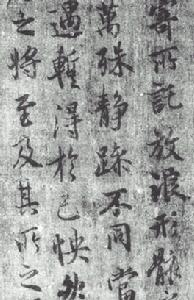 寄所託放浪形骸
萬殊靜躁不同當
遇蹔得於己怏然
之將至及其所之